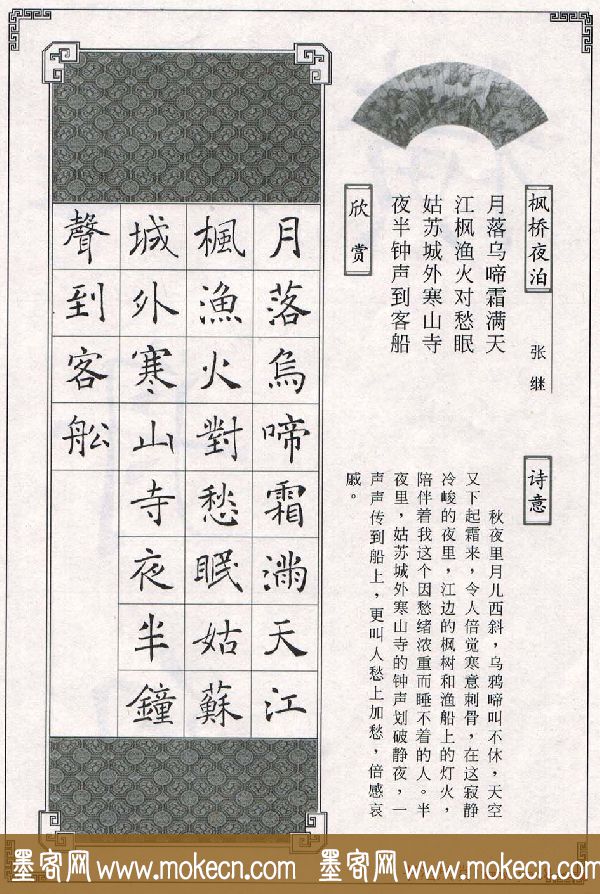 枫桥夜泊
张继
月落乌啼霜满天
江枫渔火对愁眠
姑苏城外寒山寺
夜半钟声到客船
诗意
秋夜里月儿西斜，乌鸦啼叫不休，天空
又下起霜来，令人倍觉寒意刺骨，在这寂静
冷峻的夜里，江边的枫树和渔船上的灯火，
陪伴着我这个因愁绪浓重而睡不着的人。半
夜里，姑苏城外寒山寺的钟声划破静夜，一
声声传到船上，更叫人愁上加愁，倍感哀
戚。
欣赏
月落烏啼霜满天江
楓漁火對愁眠姑蘇
城外寒山寺夜半鐘
聲到客船
墨客网 www.mokecn.com 墨客网 www.mokecn.com